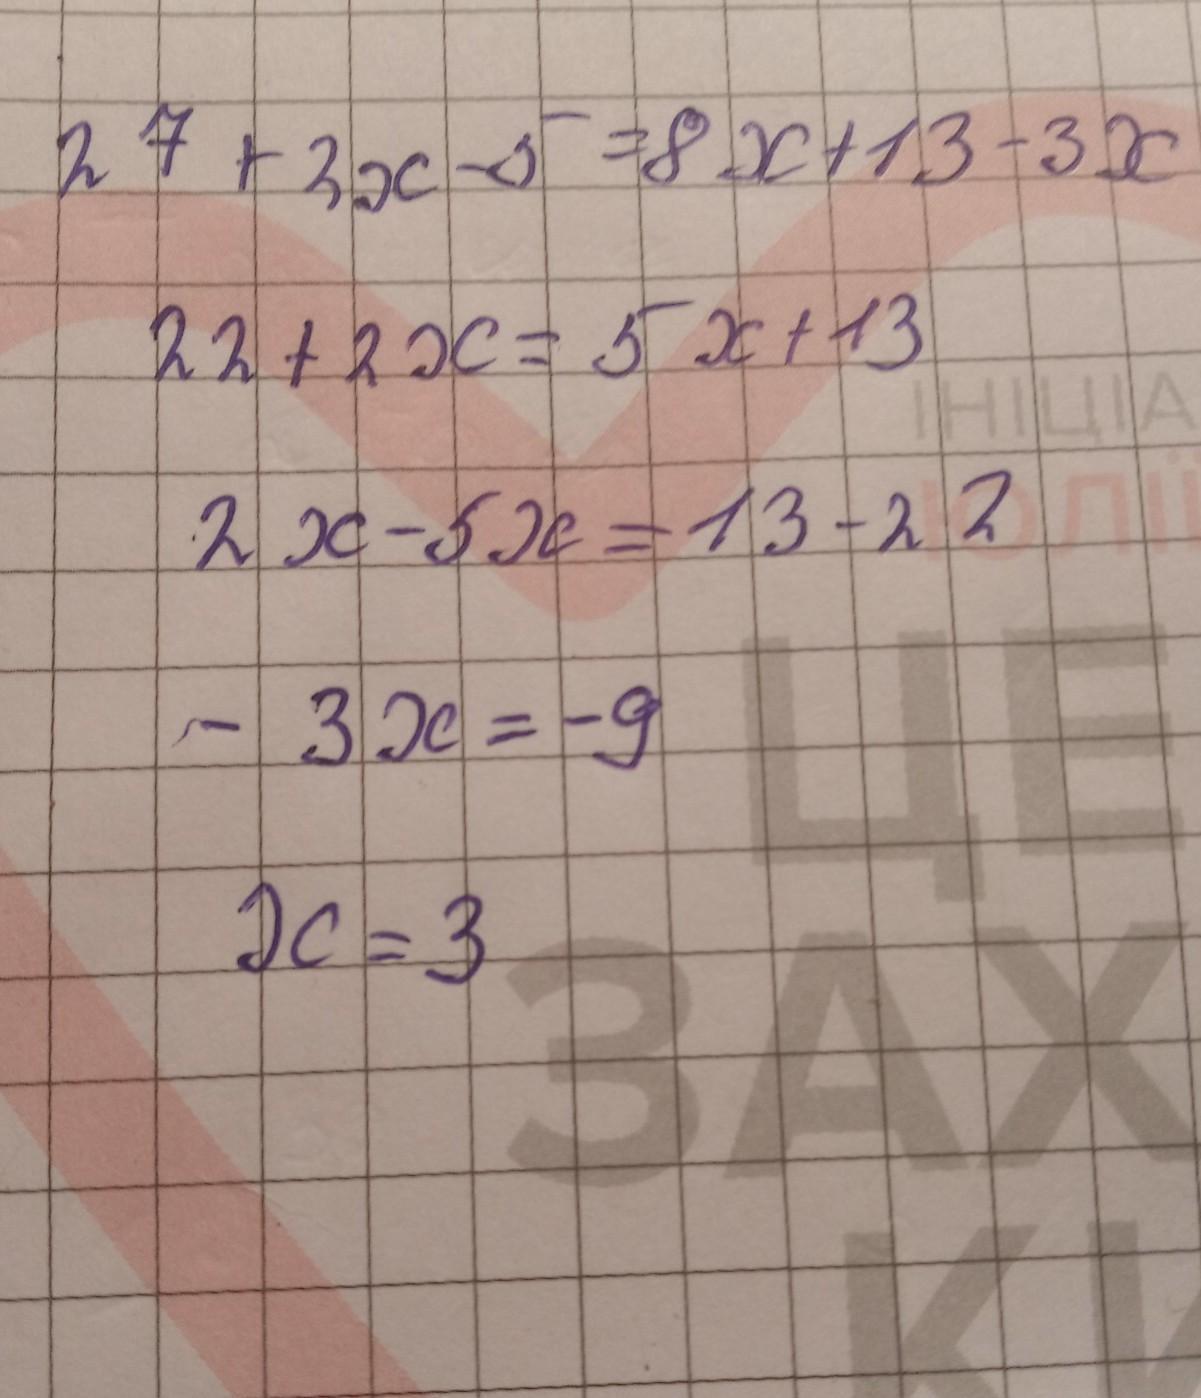 27 + 3x - 5 = 8x + 13 - 3x
22 + 2x = 5x + 13
2x - 5x = 13 - 22
- 3x = -9
x = 3
ІНІЦІА
ЮЛІЇ
ЦЕ
ЗАХ